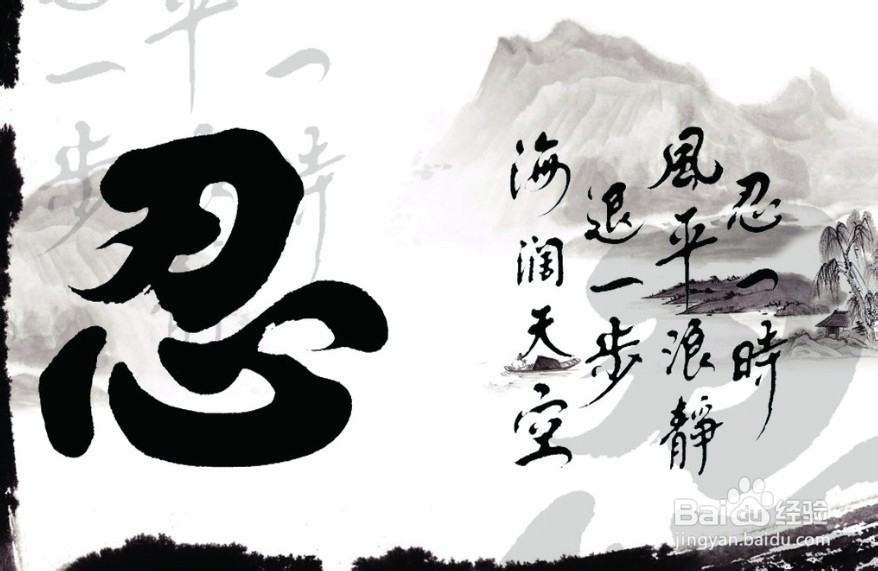 忍
忍一時
風平浪靜
退一步
海濶天空
Baidu 经验
jingyan.baidu.com